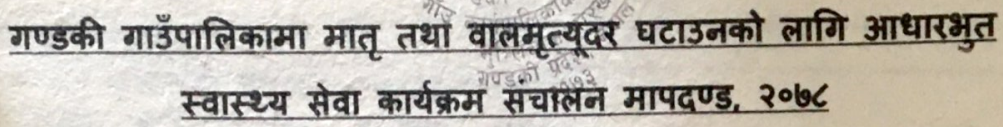 गण्डकी गाउँपालिकामा मातृ तथा वालमृत्यूदर घटाउनको लागि आधारभुत
स्वास्थ्य सेवा कार्यक्रम संचालन मापदण्ड, २०७८